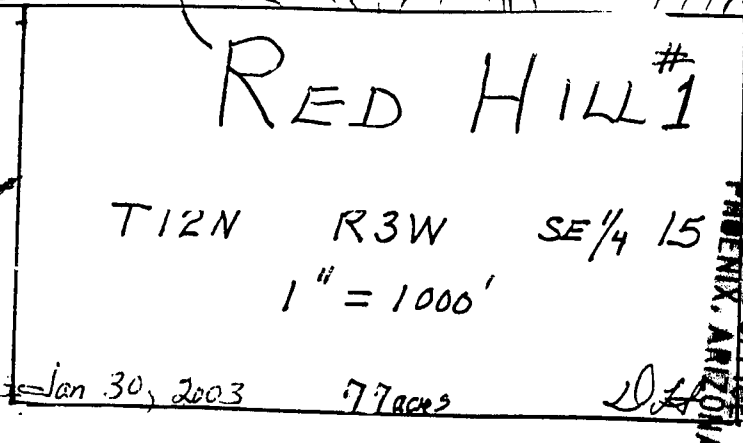 RED HILL #1
T12N R3W SE 1/4 15
1" = 1000'
Jan 30, 2003 77 acres
PHOENIX, ARIZONA